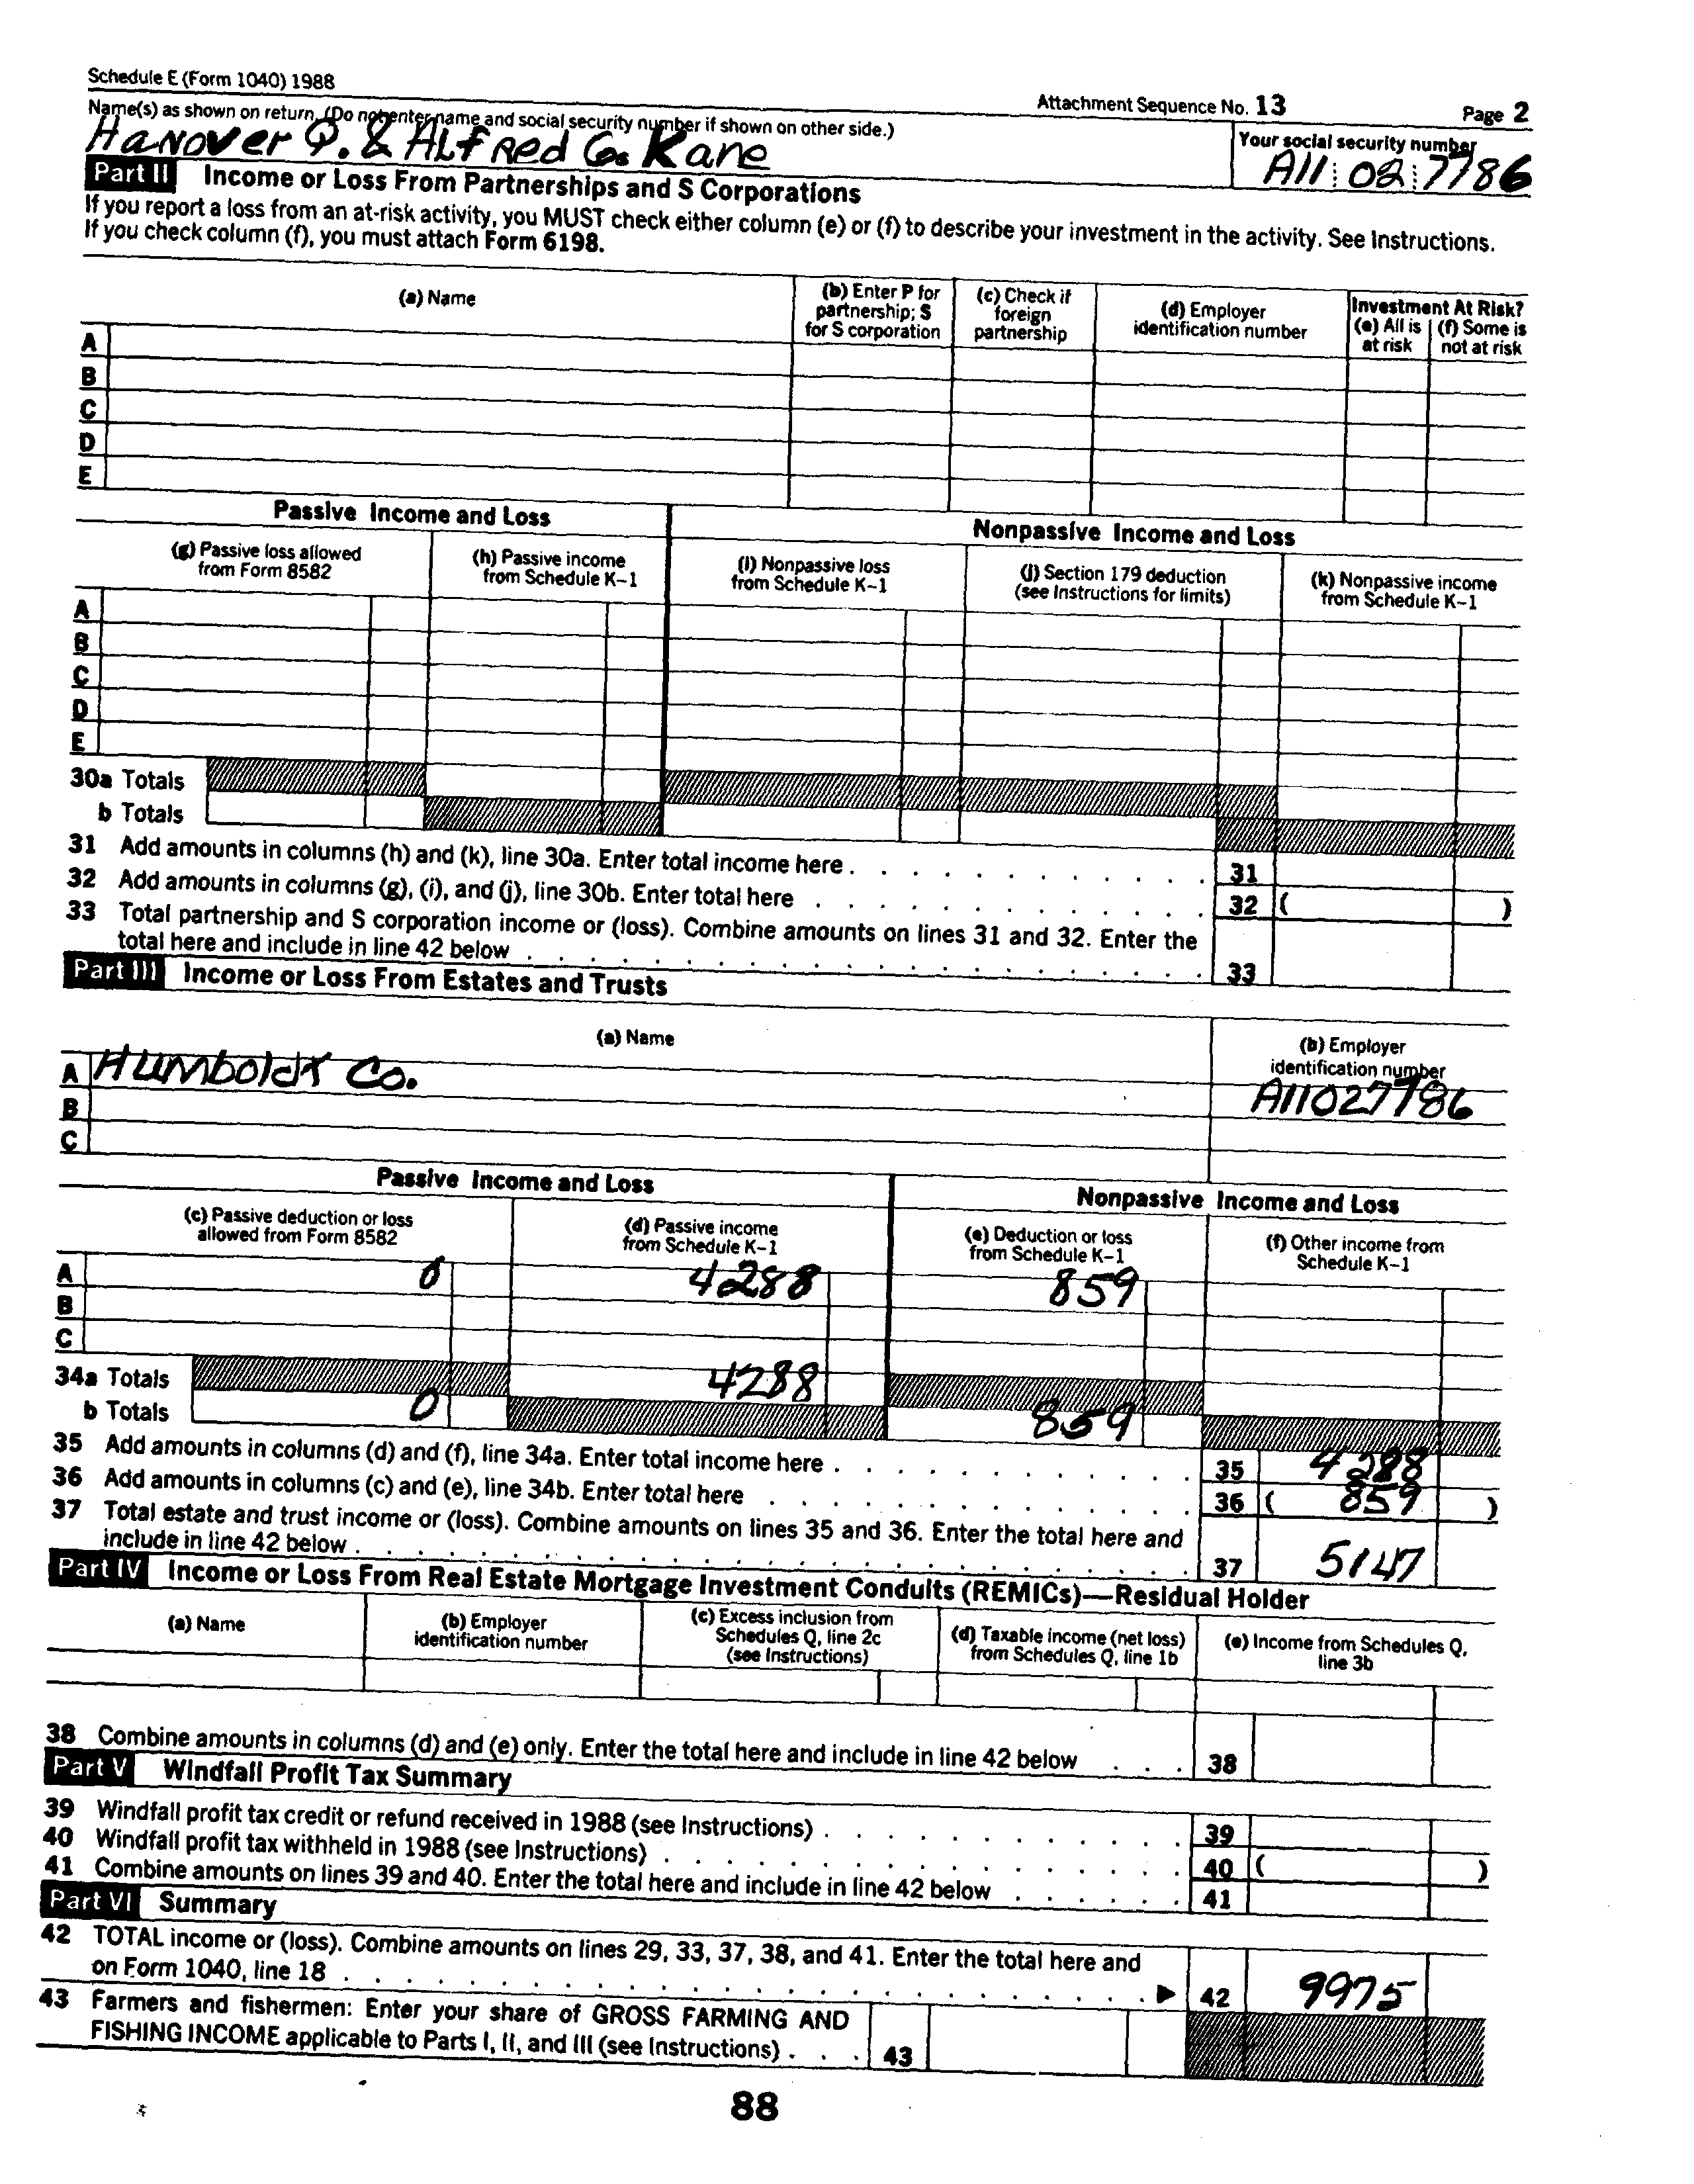 Schedule E (Form 1040) 1988
Attachment Sequence No. 13
Page 2
Name(s) as shown on return. (Do not enter name and social security number if shown on other side.)
Your social security number
Hanover Q. & Alfred G. Kane
A11 02 7786
Part II Income or Loss From Partnerships and S Corporations
If you report a loss from an at-risk activity, you MUST check either column (e) or (f) to describe your investment in the activity. See Instructions.
If you check column (f), you must attach Form 6198.
(a) Name
(b) Enter P for partnership; S for S corporation
(c) Check if foreign partnership
(d) Employer identification number
Investment At Risk?
(e) All is at risk
(f) Some is not at risk
A
B
C
D
E
Passive Income and Loss
Nonpassive Income and Loss
(g) Passive loss allowed from Form 8582
(h) Passive income from Schedule K-1
(i) Nonpassive loss from Schedule K-1
(j) Section 179 deduction (see Instructions for limits)
(k) Nonpassive income from Schedule K-1
A
B
C
D
E
30a Totals
b Totals
31 Add amounts in columns (h) and (k), line 30a. Enter total income here . . . 31
32 Add amounts in columns (g), (i), and (j), line 30b. Enter total here . . . 32 ( )
33 Total partnership and S corporation income or (loss). Combine amounts on lines 31 and 32. Enter the
total here and include in line 42 below . . . 33
Part III Income or Loss From Estates and Trusts
(a) Name
(b) Employer identification number
A Humboldt Co. A11027786
B
C
Passive Income and Loss
Nonpassive Income and Loss
(c) Passive deduction or loss allowed from Form 8582
(d) Passive income from Schedule K-1
(e) Deduction or loss from Schedule K-1
(f) Other income from Schedule K-1
A 0 4288 859
B
C
34a Totals 4288
b Totals 0 859
35 Add amounts in columns (d) and (f), line 34a. Enter total income here . . . 35 4288
36 Add amounts in columns (c) and (e), line 34b. Enter total here . . . 36 ( 859 )
37 Total estate and trust income or (loss). Combine amounts on lines 35 and 36. Enter the total here and
include in line 42 below . . . 37 5147
Part IV Income or Loss From Real Estate Mortgage Investment Conduits (REMICs)—Residual Holder
(a) Name
(b) Employer identification number
(c) Excess inclusion from Schedules Q, line 2c (see Instructions)
(d) Taxable income (net loss) from Schedules Q, line 1b
(e) Income from Schedules Q, line 3b
38 Combine amounts in columns (d) and (e) only. Enter the total here and include in line 42 below . . . 38
Part V Windfall Profit Tax Summary
39 Windfall profit tax credit or refund received in 1988 (see Instructions) . . . 39
40 Windfall profit tax withheld in 1988 (see Instructions) . . . 40 ( )
41 Combine amounts on lines 39 and 40. Enter the total here and include in line 42 below . . . 41
Part VI Summary
42 TOTAL income or (loss). Combine amounts on lines 29, 33, 37, 38, and 41. Enter the total here and
on Form 1040, line 18 . . . ▶ 42 9975
43 Farmers and fishermen: Enter your share of GROSS FARMING AND
FISHING INCOME applicable to Parts I, II, and III (see Instructions) . . . 43
88